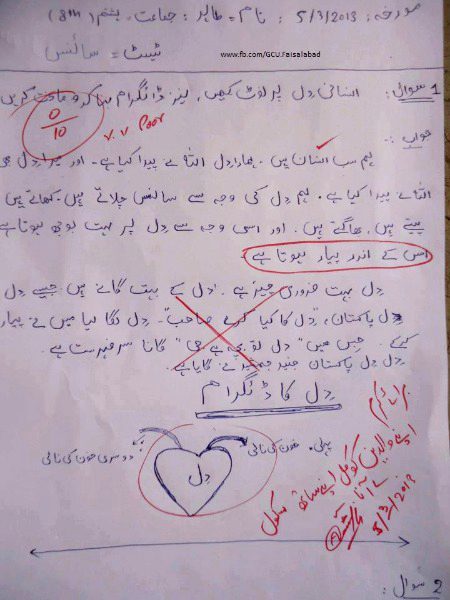 مورخہ: 5/3/2013 نام = طاہر : جماعت = ہشتم (8th)
ٹیسٹ = سائنس
www.fb.com/GCU.Faisalabad
سوال 1: انسانی دل پر نوٹ لکھیں، نیز ڈائگرام بنا کر وضاحت کریں
0/10
v.v Poor
جواب:
ہم سب انسان ہیں۔ ہمارا دل اللہ نے پیدا کیا ہے۔ اور میرا دل بھی
اللہ نے پیدا کیا ہے۔ ہم دل کی وجہ سے سانس چلاتے ہیں۔ کھاتے ہیں
پیتے ہیں، بھاگتے ہیں۔ اور اسی وجہ سے دل پر بہت بوجھ ہوتا ہے
اس کے اندر پیار ہوتا ہے
دل بہت ضروری چیز ہے۔ دل کے بہت گانے ہیں جیسے دل
دل پاکستان، "دل کا کیا کرے صاحب"۔ دل لگا لیا میں نے پیار
کرکے۔ جس میں "دل تو بچہ ہے جی" گانا سرفہرست ہے۔
دل دل پاکستان جنید جمشید نے گایا ہے۔
دل کا ڈئگرام
پہلی خون کی نالی
دوسری خون کی نالی
دل
اپنے والدین کو کل اپنے ساتھ سکول
لے آنا
5/3/2013
سوال 2: